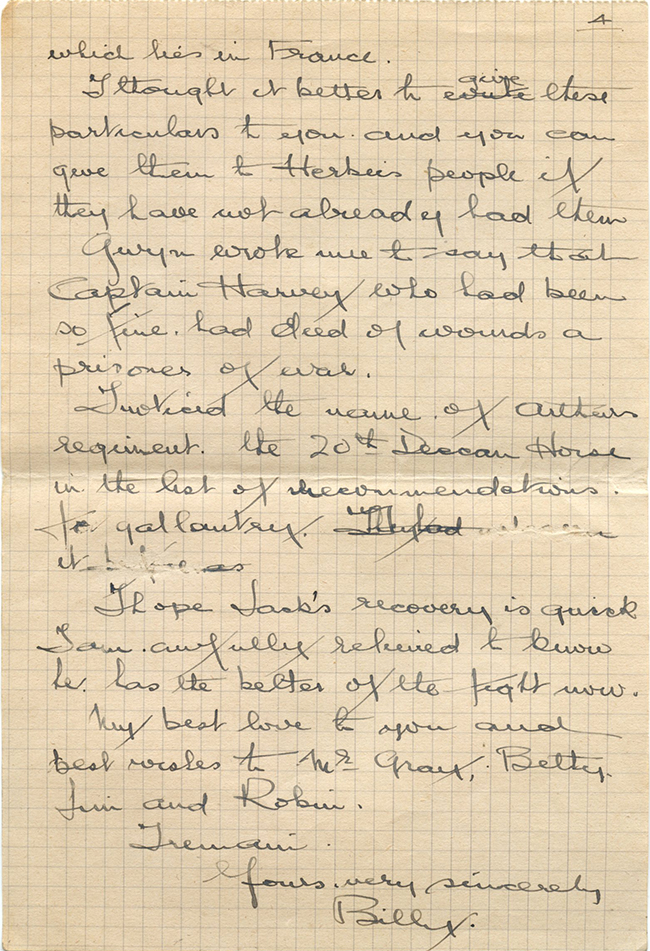 4
which lies in France.
I thought it better to write give these
particulars to you. and you can
give them to Herbies people if
they have not already had them
Gwyn wrote me to say that
Captain Harvey who had been
so fine. had died of wounds a
prisoner of war.
I noticed the name of Arthurs
regiment. the 20th Deccan Horse
in the list of recommendations.
for gallantry. They had
it before as
I hope Jack's recovery is quick
I am. awfully relieved to know
he. has the better of the fight now.
My best love to you and
best wishes to Mr Gray, Betty.
Jim and Robin.
I remain.
Yours very sincerely
Billy.